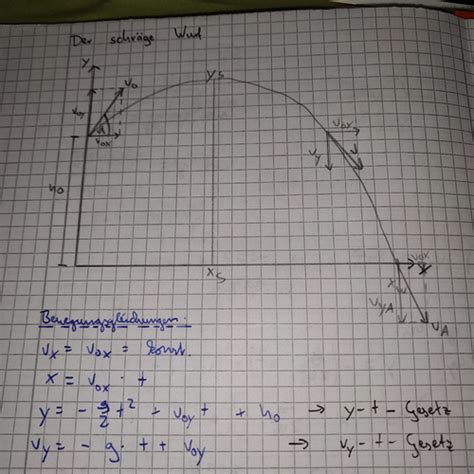 Der schräge Wurf
y
yS
v0
v0y
α
v0x
v0x
vy
h0
v0x
x
xS
xw
vyA
vA
Bewegungsgleichungen:
vx = v0x = konst.
x = v0x · t
y = - g/2 t² + v0y t + h0 → y-t-Gesetz
vy = - g · t + v0y → vy-t-Gesetz